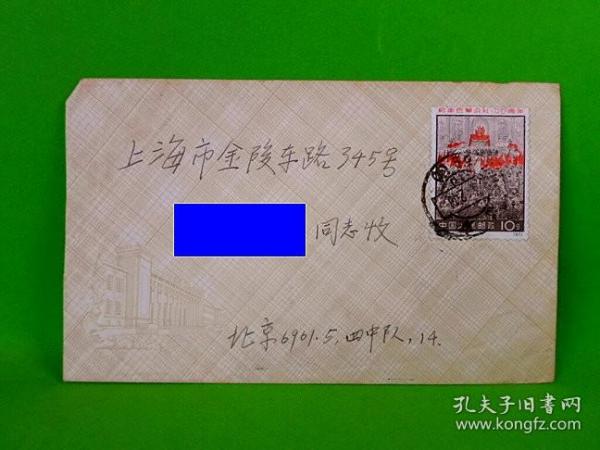 纪念巴黎公社一百周年
上海市金陵东路345号
中国人民邮政 10分
同志收
北京6901.5,四中队,14.
孔夫子旧书网
www.kongfz.com